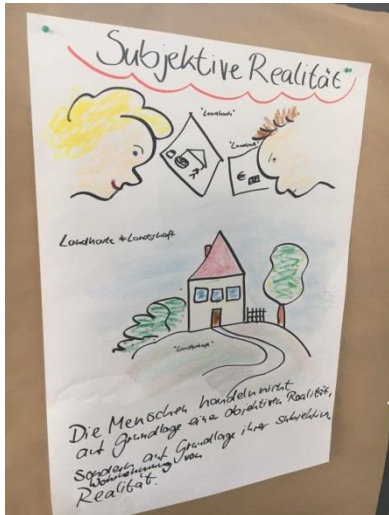 Subjektive Realität
"Landkarte"
"Landkarte"
Landkarte ≠ Landschaft
"Landschaft"
Die Menschen handeln nicht
auf Grundlage eine objektiven Realität,
sondern auf Grundlage ihrer subjektiven
Wahrnehmung von
Realität.